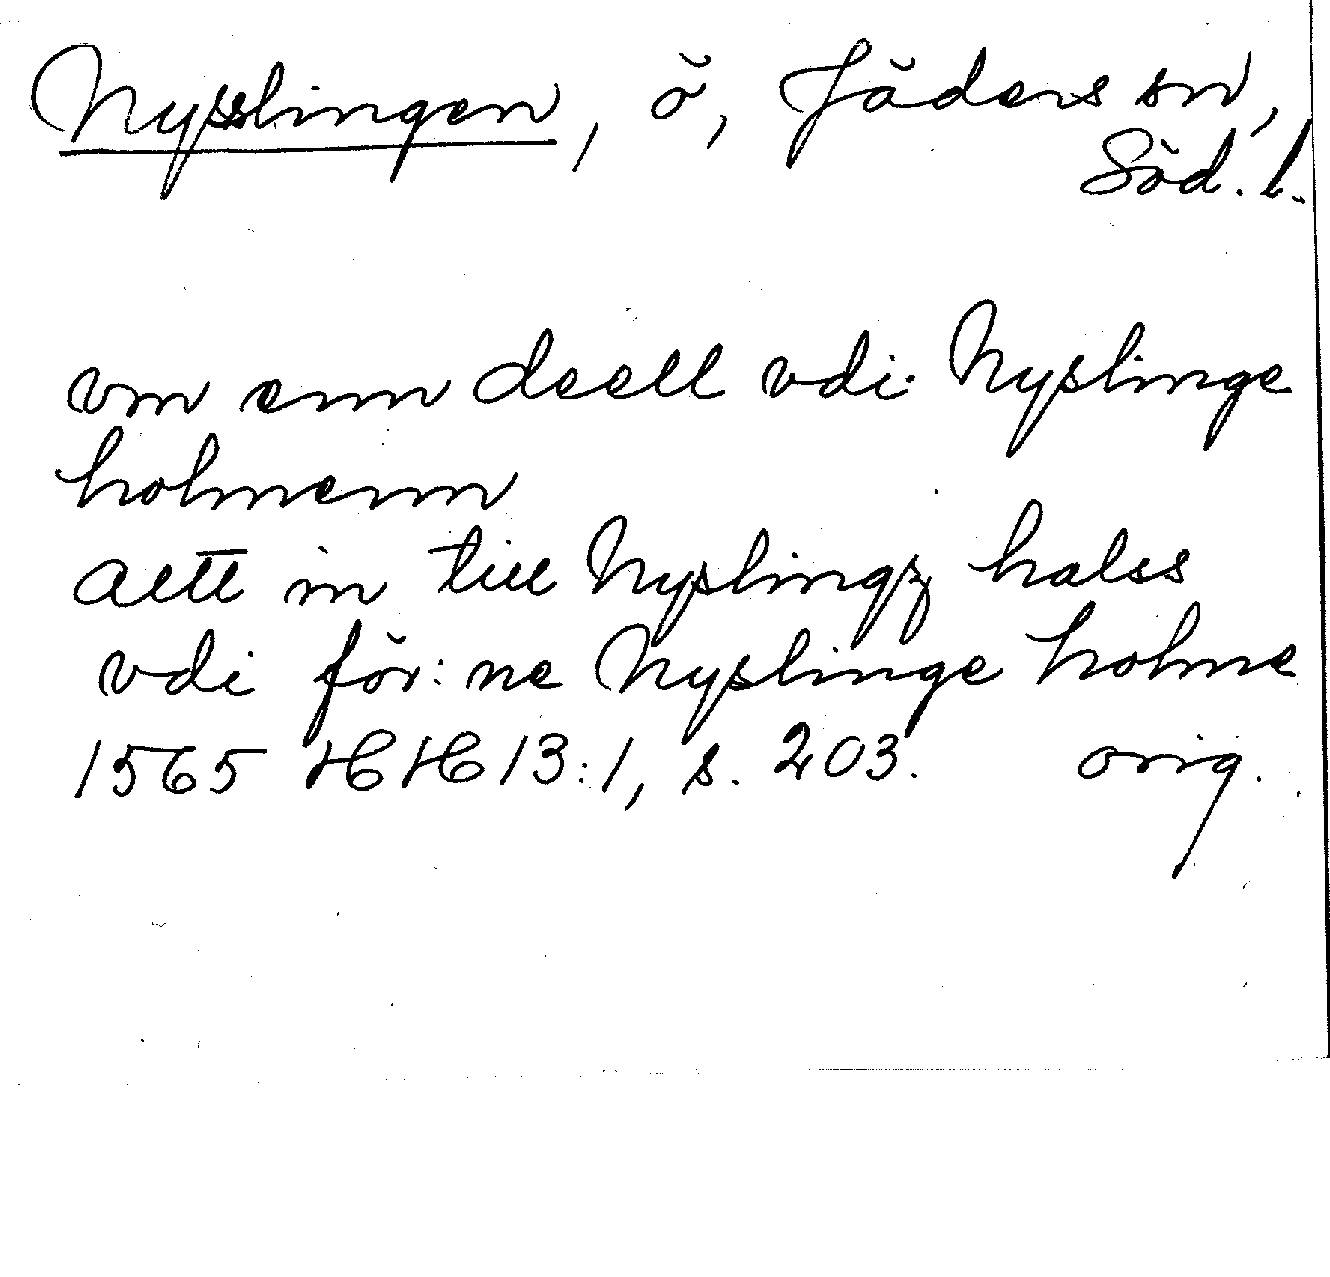 Nysslingen, ö, Jäders sn,
Söd. l.
vm enn deell vdi Nyslinge
holmenn
Aett in till Nyslingz halss
vdi för:ne Nyslinge holme
1565 HH 13:1, s. 203. orig.